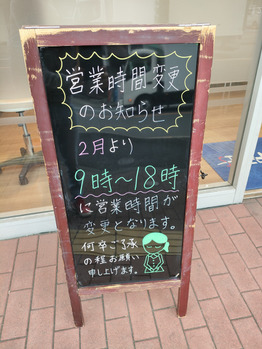 営業時間変更
のお知らせ
2月より
9時〜18時
に営業時間が
変更となります。
何卒ご了承
の程お願い
申し上げます。